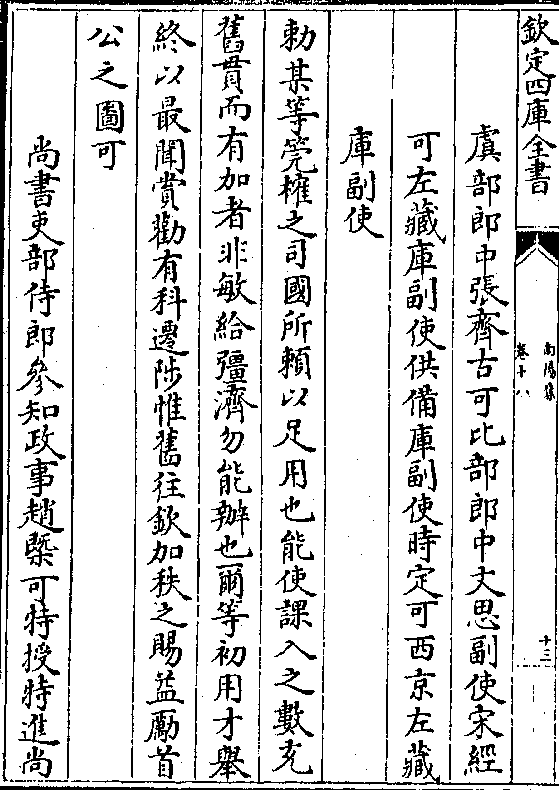 欽定四庫全書
南陽集
卷十八
十三
虞部郎中張齊古可比部郎中文思副使宋經
可左藏庫副使供備庫副使時定可西京左藏
庫副使
勅某等筦榷之司國所頼以足用也能使課入之數充
舊貫而有加者非敏給彊濟勿能辦也爾等初用才舉
終以最聞賞勸有科遷陟惟舊往欽加秩之賜益勵首
公之圖可
尚書吏部侍郎參知政事趙槩可特授特進尚